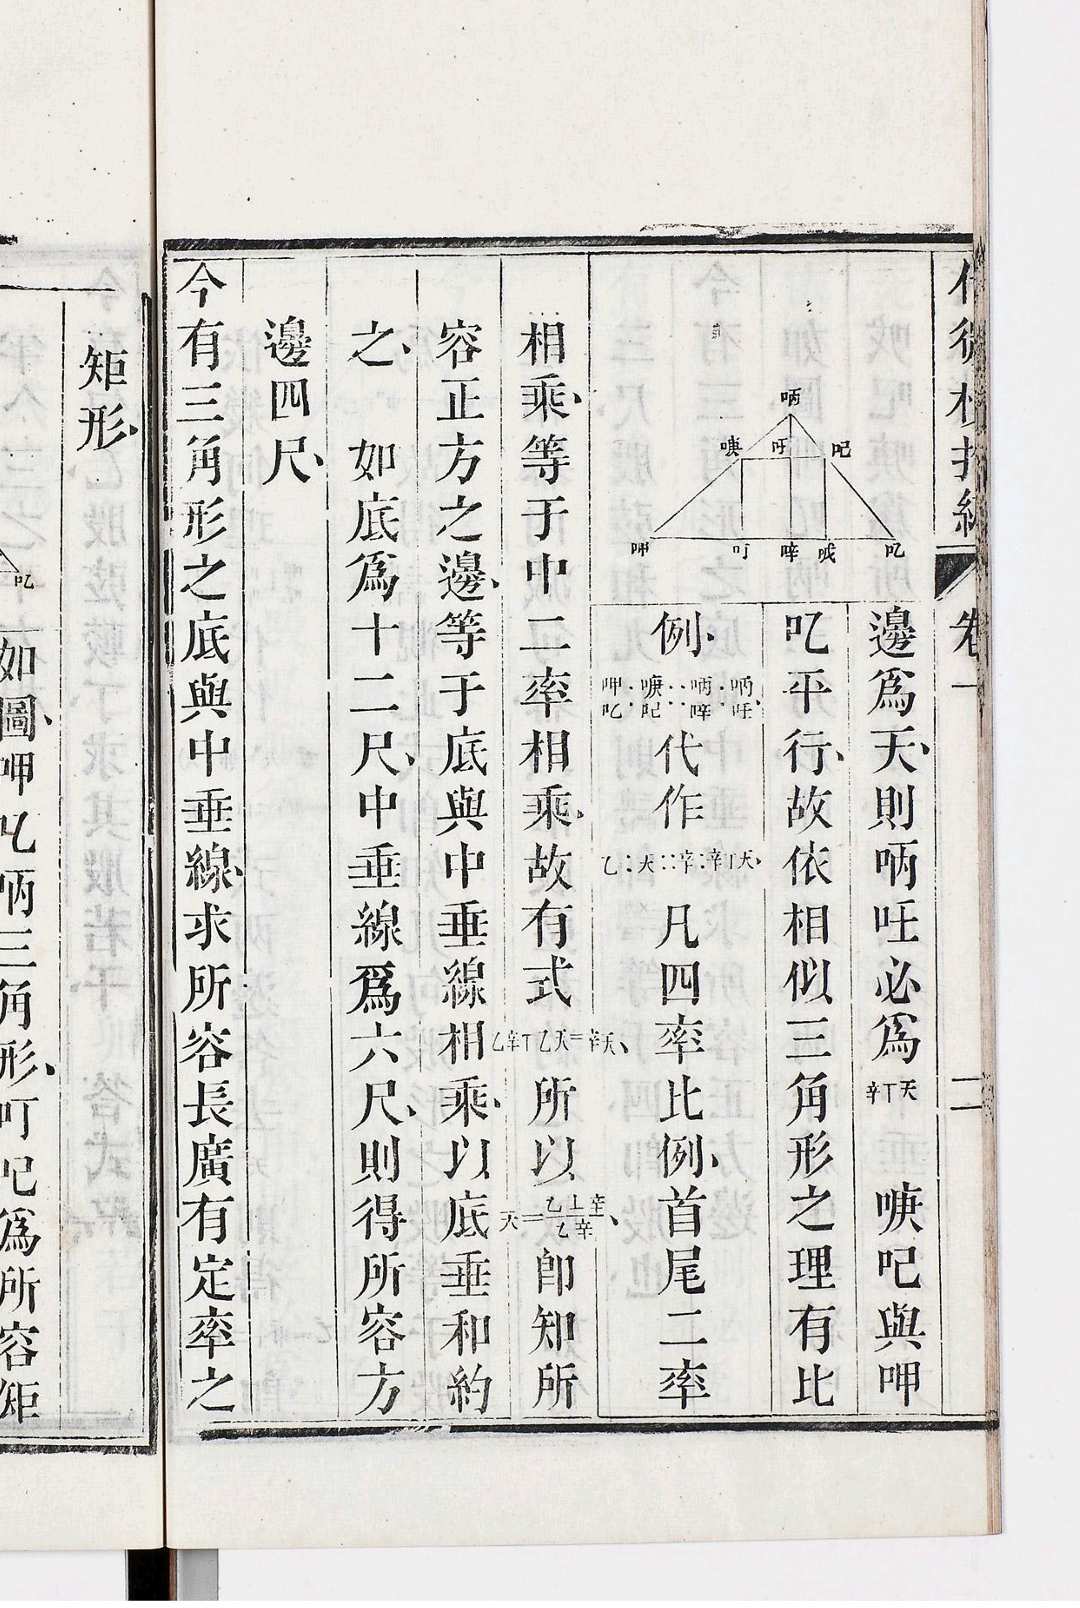 代微積拾級 卷一 二
邊爲天、則𠰳必爲辛丅天 𠯇與呷
𠮙平行、故依相似三角形之理有比
例、代作 乙∶天∷辛∶辛丅天、凡四率比例、首尾二率
相乘、等于中二率相乘、故有式 乙辛丅乙天=辛天、所以 天=乙丄辛/乙辛、卽知所
容正方之邊、等于底與中垂線相乘、以底垂和約
之、 如底爲十二尺、中垂線爲六尺、則得所容方
邊四尺、
今有三角形之底與中垂線、求所容長廣有定率之
矩形、
𠮙
如圖、呷𠮙𠰳三角形、叮𠯇爲所容矩